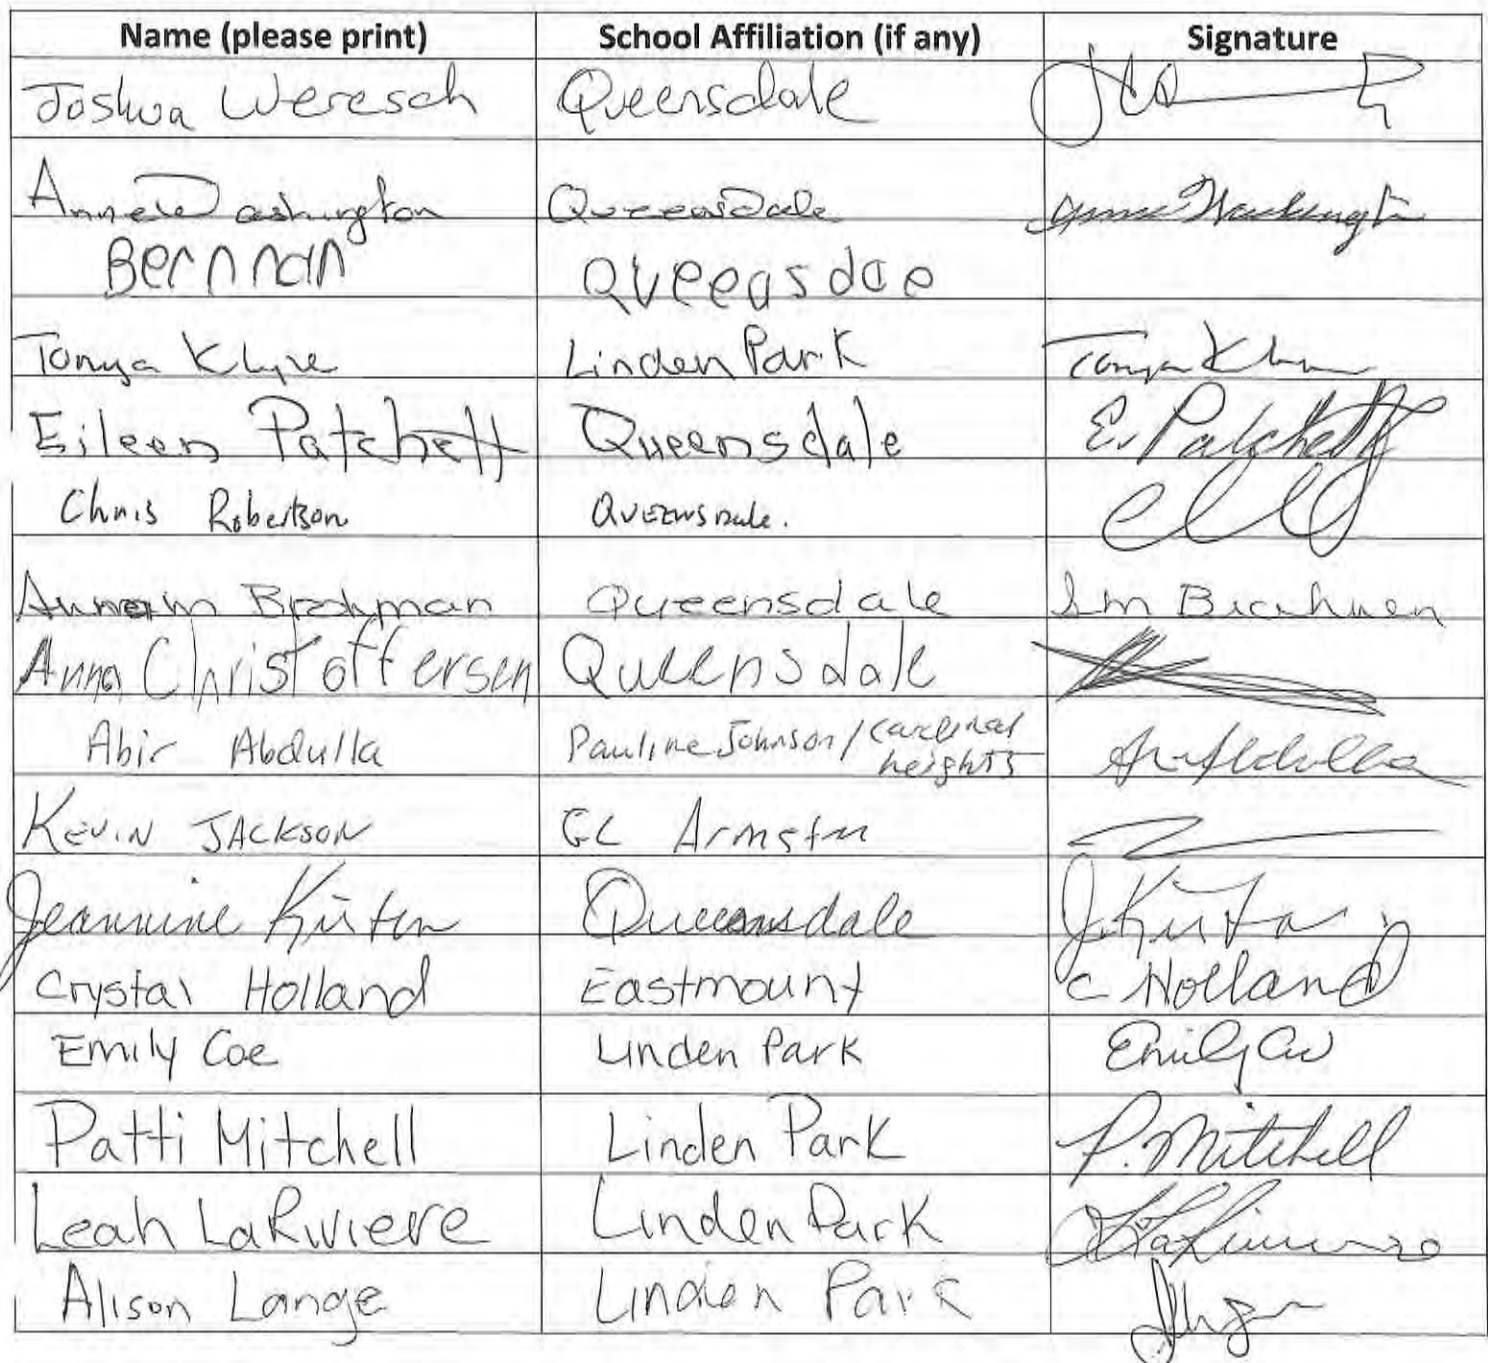 Name (please print) School Affiliation (if any) Signature
Joshua Weresch Queensdale
Anne Washington Queensdale Anne Washington
Bernnan Queeasdae
Tonya Klyne Linden Park Tonya
Eileen Patchett Queensdale E. Patchett
Chris Robertson Queensdale.
Queensdale
Anna Christoffersen Queensdale
Abir Abdulla Pauline Johnson / Cardinal
heights
Kevin Jackson GL
Jeannine Kirsten Queensdale
Crystal Holland Eastmount C Holland
Emily Coe Linden Park Emily Coe
Patti Mitchell Linden Park P. Mitchell
Leah LaRiviere Linden Park
Alison Lange Linden Park